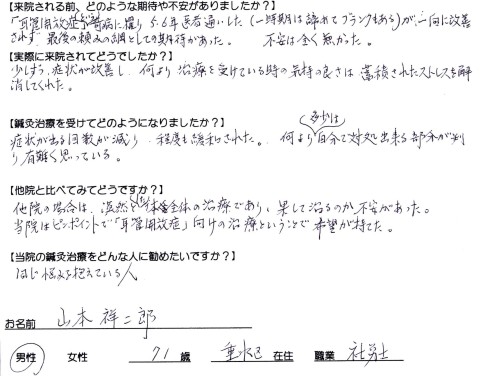 【来院される前、どのような期待や不安がありましたか？】
「耳管開放症」という奇病に罹り 5.6年医者通いした(一時期は諦めてブランクもある)が一向に改善
されず 最後の頼みの綱としての期待があった。 不安は全く無かった。
【実際に来院されてどうでしたか？】
少しずつ症状が改善し、何より治療を受けている時の気持の良さは 蓄積されたストレスを解
消してくれた。
【鍼灸治療を受けてどのようになりましたか？】
症状が出る回数が減り、程度も緩和された。何より多少は自分で対処出来る部分が判
り有難く思っている。
【他院と比べてみてどうですか？】
他院の場合は、漠然とした体全体の治療であり、果して治るのか不安があった。
当院はピンポイントで「耳管開放症」向けの治療ということで希望が持てた。
【当院の鍼灸治療をどんな人に勧めたいですか？】
同じ悩みを抱えている人
お名前 山本 祥二郎
男性 女性 71 歳 垂水区 在住 職業 社労士